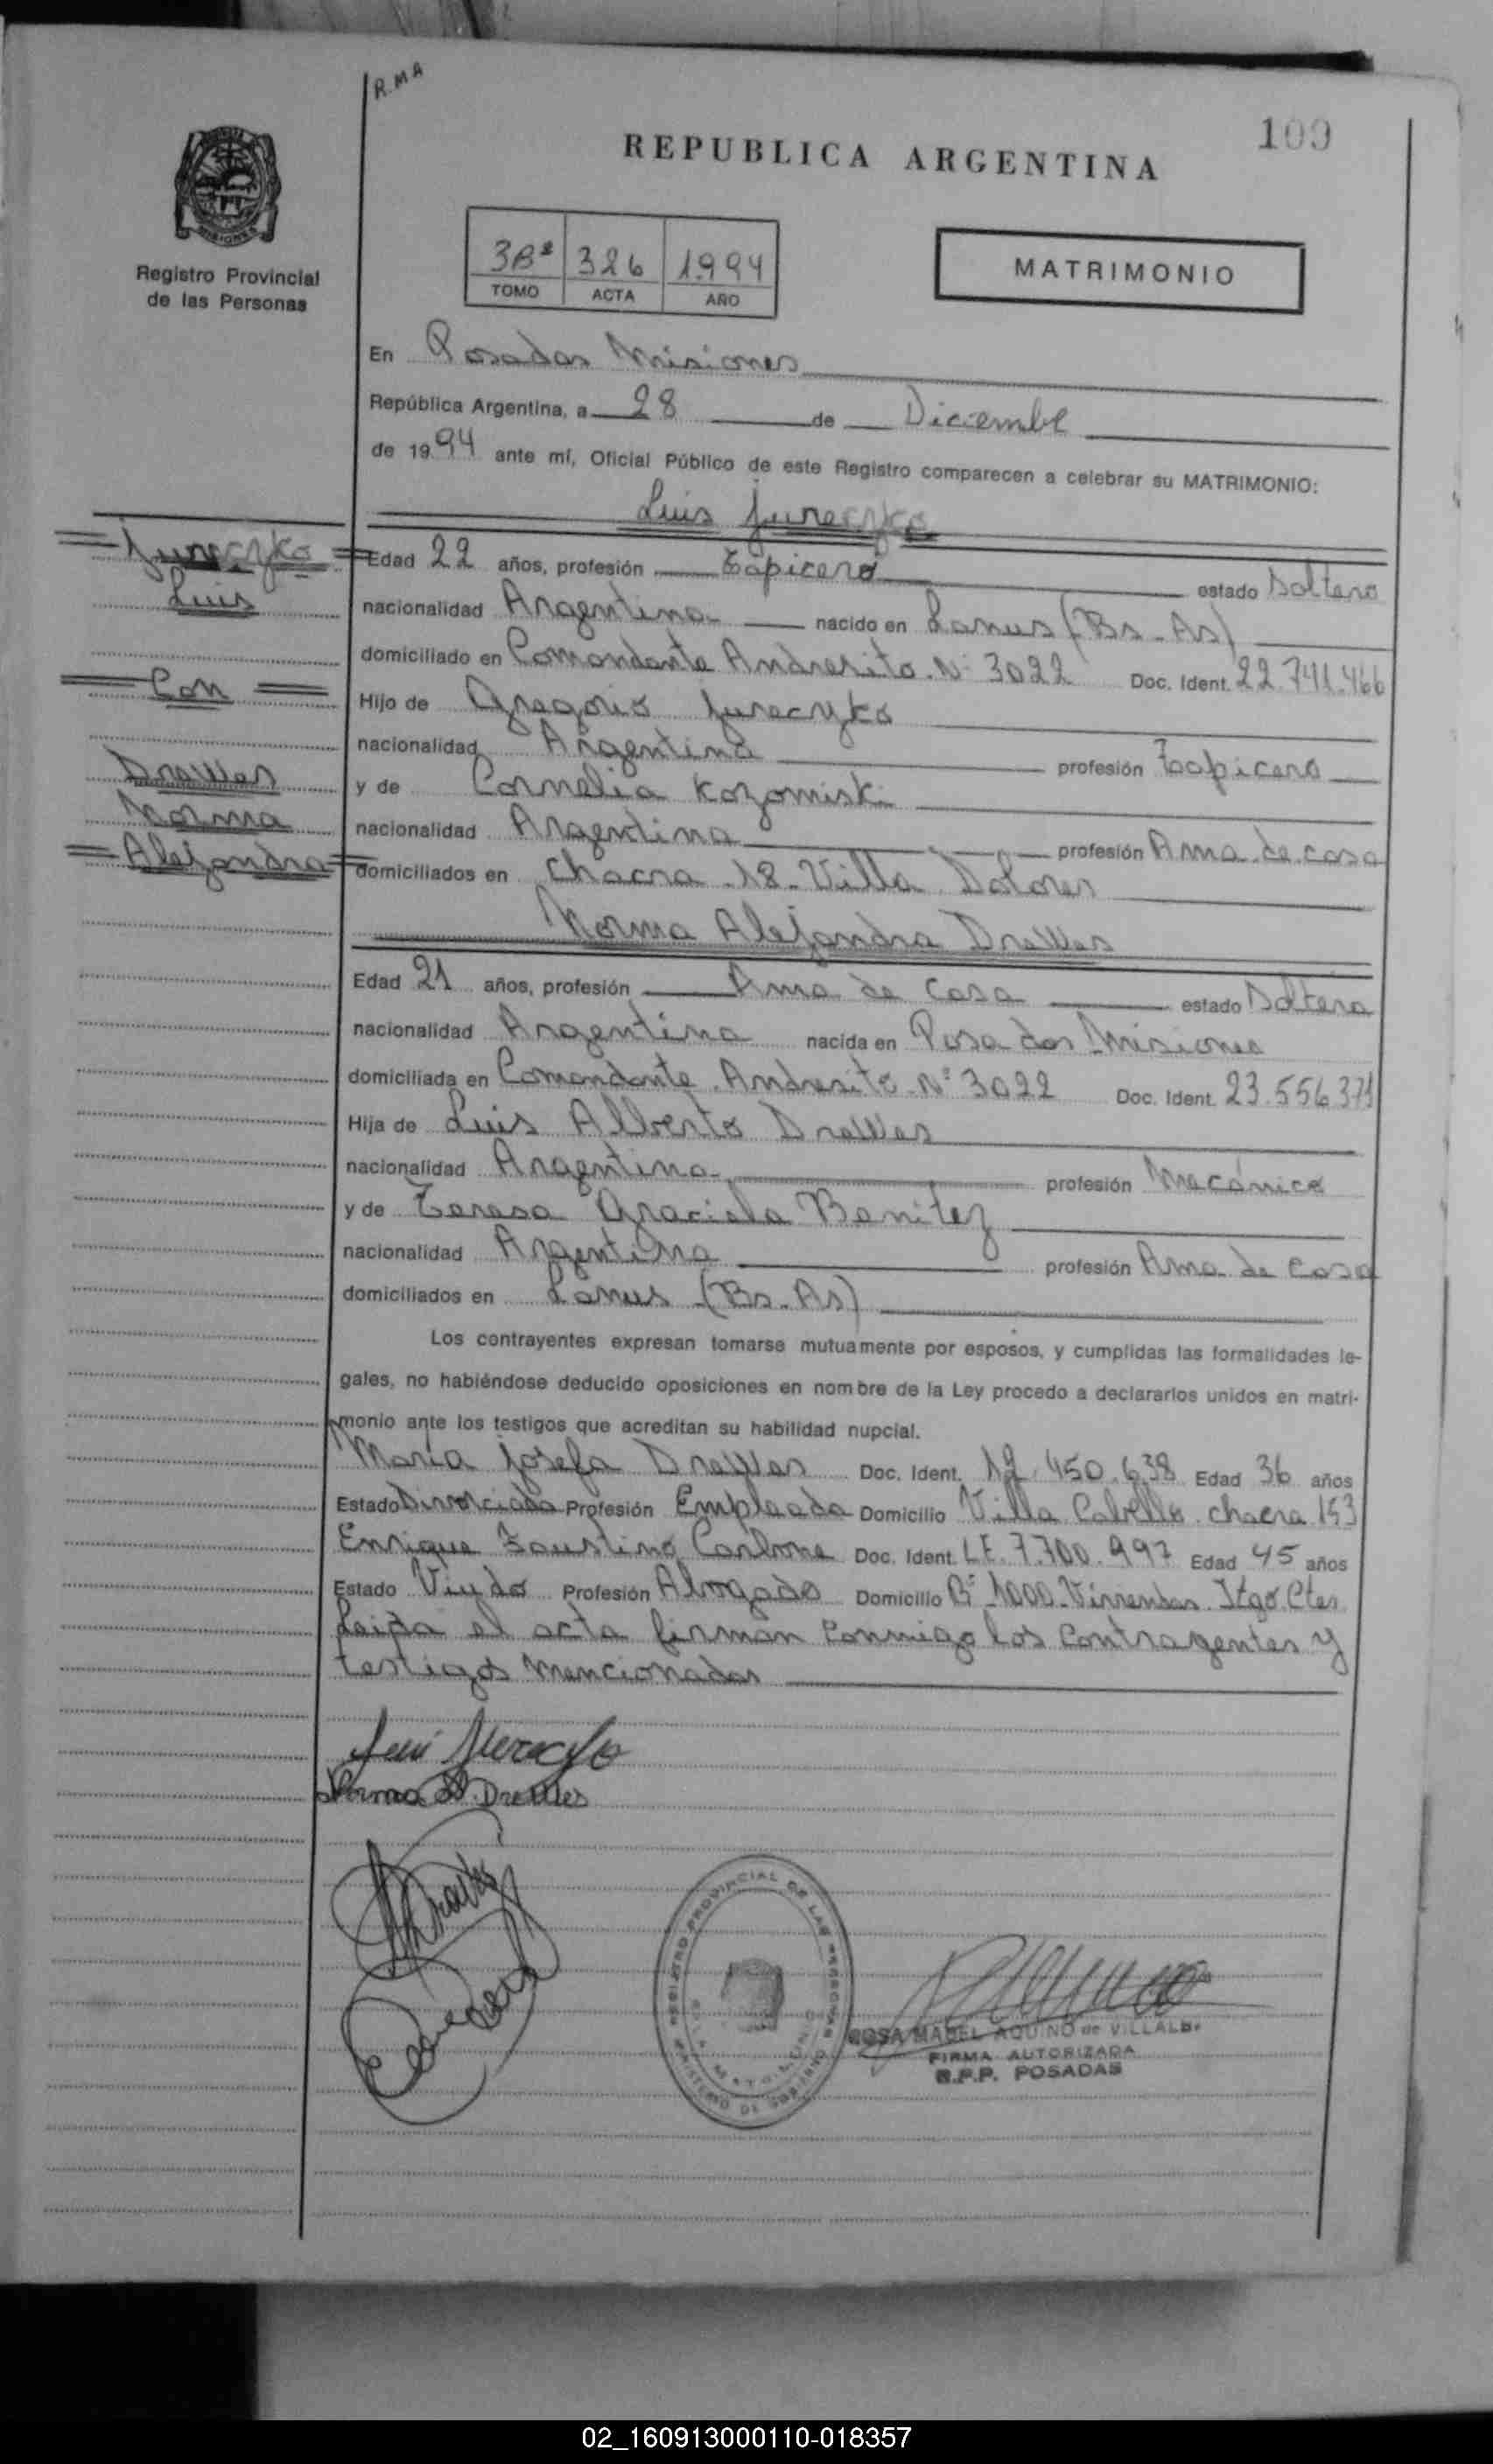 R.M.A
109
REPUBLICA ARGENTINA
Registro Provincial
de las Personas
3Bº 326 1994
TOMO ACTA AÑO
MATRIMONIO
En Posadas Misiones
República Argentina, a 28 de Diciembe
de 1994 ante mí, Oficial Público de este Registro comparecen a celebrar su MATRIMONIO:
Luis Jureczko
Jureczko
Luis
Con
Drewes
Norma
Alejandra
Edad 22 años, profesión Tapicero estado Soltero
nacionalidad Argentina nacido en Lanus (Bs-As)
domiciliado en Comandante Andresito Nº 3022 Doc. Ident. 22.741.466
Hijo de Gregorio Jureczko
nacionalidad Argentina profesión Tapicero
y de Cornelia Kozomiski
nacionalidad Argentina profesión Ama de casa
domiciliados en Chacra 18 - Villa Dolores
Norma Alejandra Drewes
Edad 21 años, profesión Ama de Casa estado Soltera
nacionalidad Argentina nacida en Posadas Misiones
domiciliada en Comandante Andresito Nº 3022 Doc. Ident. 23.556.371
Hija de Luis Alberto Drewes
nacionalidad Argentina profesión Mecánico
y de Teresa Graciela Benitez
nacionalidad Argentina profesión Ama de Casa
domiciliados en Lanus (Bs-As)
Los contrayentes expresan tomarse mutuamente por esposos, y cumplidas las formalidades le-
gales, no habiéndose deducido oposiciones en nombre de la Ley procedo a declararlos unidos en matri-
monio ante los testigos que acreditan su habilidad nupcial.
María Josefa Drewes Doc. Ident. 12.450.638 Edad 36 años
Estado Divorciada Profesión Empleada Domicilio Villa Cabello chacra 153
Enrique Faustino Carbone Doc. Ident. L.E. 7.700.997 Edad 45 años
Estado Viudo Profesión Abogado Domicilio Bº 1000 Viviendas Stgo. Ctes
Leida el acta firman conmigo los contrayentes y
testigos mencionados
Luis Jureczko
Norma A. Drewes
REGISTRO PROVINCIAL DE LAS PERSONAS
MINISTERIO DE GOBIERNO
ROSA MABEL AQUINO de VILLALBA
FIRMA AUTORIZADA
R.P.P. POSADAS
02_160913000110-018357